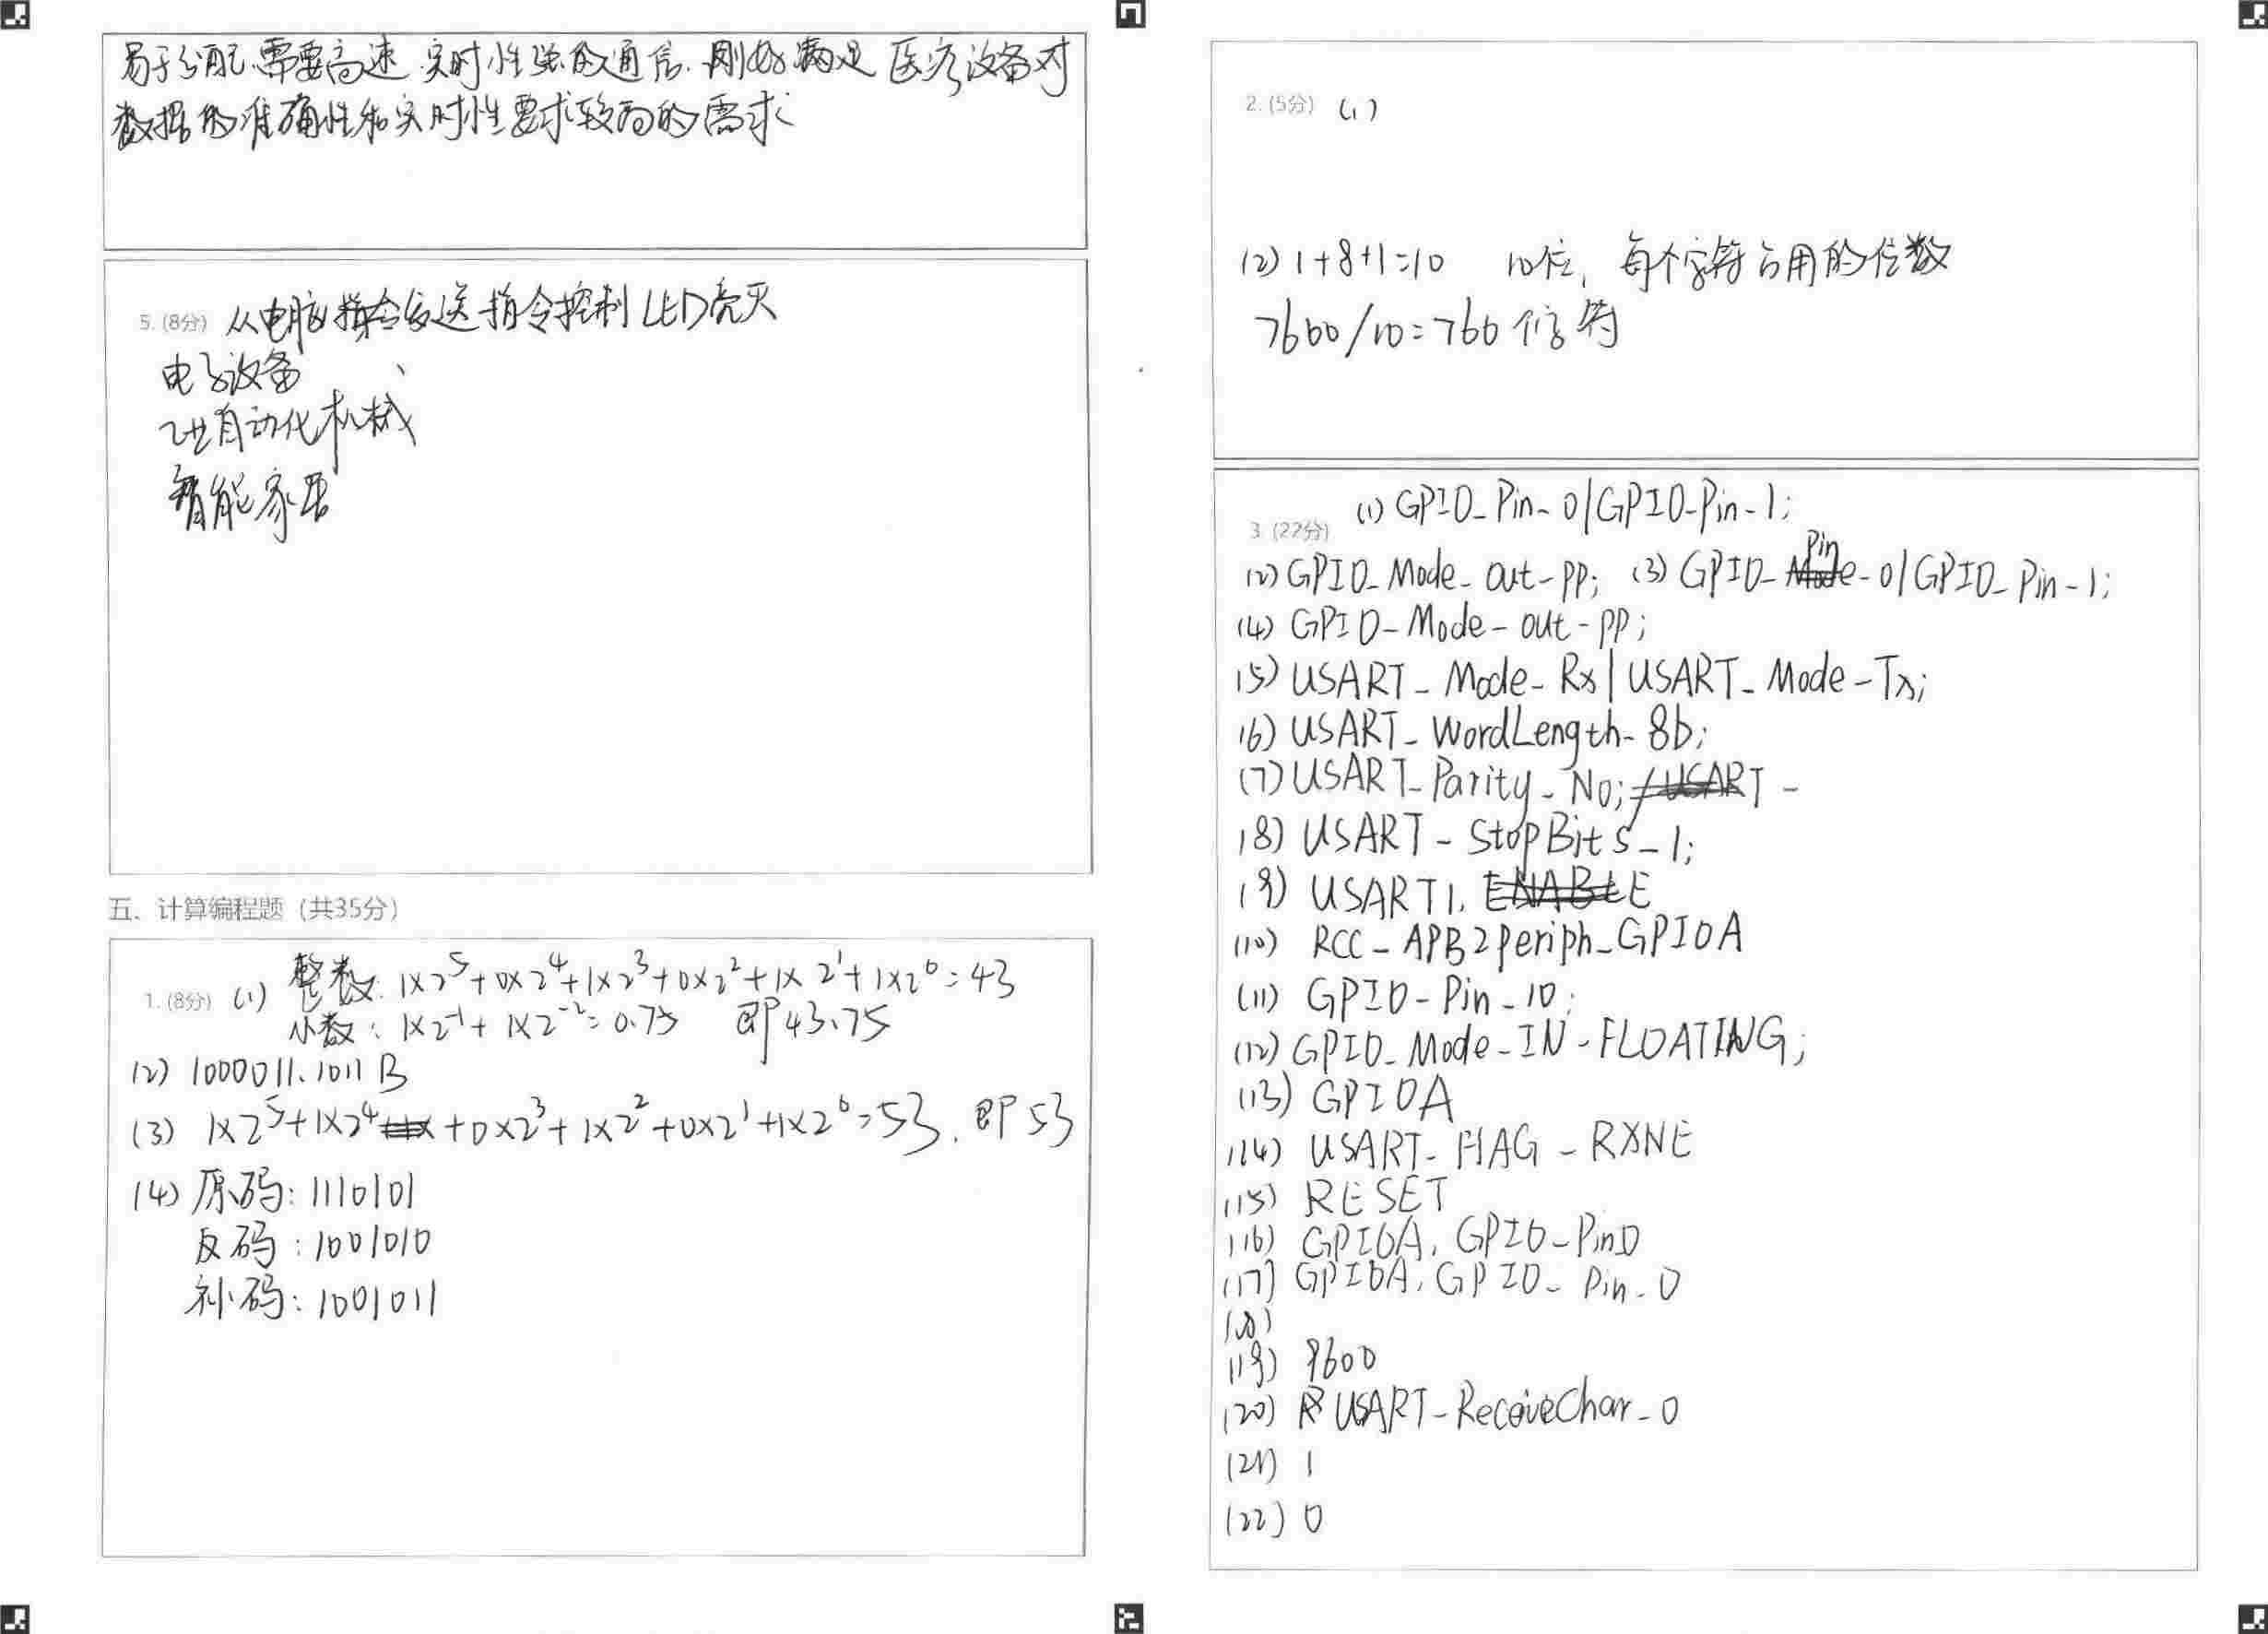 易于分配.需要高速.实时性强的通信.刚好满足医疗设备对
数据的准确性和实时性要求较高的需求
5. (8分) 从电脑发送指令控制LED亮灭
电子设备
自动化机械
智能家居
五、计算编程题（共35分）
1. (8分) (1) 整数: 1×2⁵+0×2⁴+1×2³+0×2²+1×2¹+1×2⁰=43
小数: 1×2⁻¹+1×2⁻²=0.75 即43.75
(2) 1000011.1011B
(3) 1×2⁵+1×2⁴+0×2³+1×2²+0×2¹+1×2⁰=53. 即53
(4) 原码: 1110101
反码: 1001010
补码: 1001011
2. (5分) (1)
(2) 1+8+1=10 10位, 每个字符占用的位数
7600/10=760个字符
3. (22分) (1) GPIO_Pin_0|GPIO_Pin_1;
(2) GPIO_Mode_out_pp; (3) GPIO_Pin_0|GPIO_Pin_1;
(4) GPIO_Mode_out_pp;
(5) USART_Mode_Rx|USART_Mode_Tx;
(6) USART_WordLength_8b;
(7) USART_Parity_No;
(8) USART_StopBits_1;
(9) USART1.
(10) RCC_APB2periph_GPIOA
(11) GPIO_Pin_10;
(12) GPIO_Mode_IN_FLOATING;
(13) GPIOA
(14) USART_FLAG_RXNE
(15) RESET
(16) GPIOA, GPIO_Pin0
(17) GPIOA, GPIO_Pin_0
(18)
(19) 9600
(20) USART_RecoiveChar_0
(21) 1
(22) 0